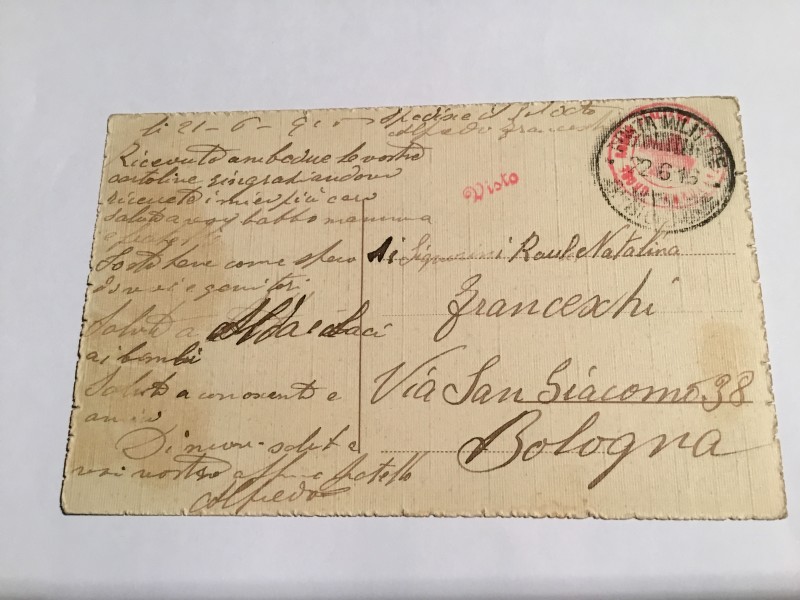 li 21-6-915
Spedisce il Soldato
Alfredo Franceschi
Ricevuto ambedue le vostre
cartoline ringraziandovi
ricevete i miei più cari
saluti a voi babbo mamma
Visto
POSTA MILITARE
22.6.15
Io sto bene come spero
di voi e genitori
Saluti a Alda e baci
ai bimbi
Saluti a conoscenti e
amici
Di nuovo saluti a
voi vostro affmo fratello
Alfredo
Ai Signorini Raul Natalina
Franceschi
Via San Giacomo 38
Bologna